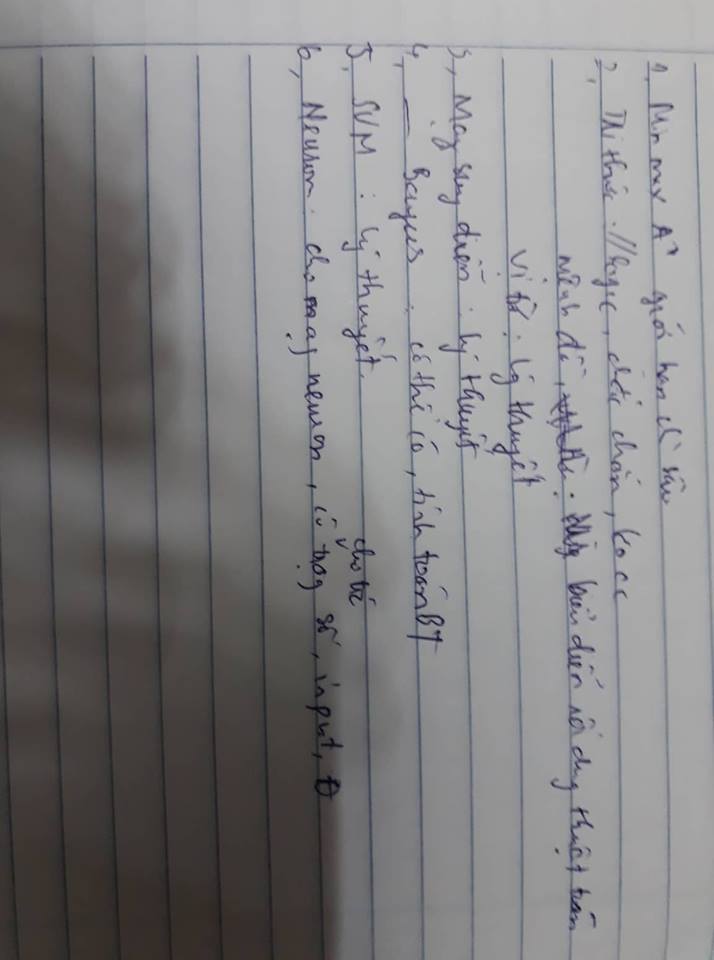 1, Min max A* giới hạn chỉ sâu
2, Tri thức : // logic, chắc chắn, ko cc
mệnh đề, : biểu diễn nội dung thuật toán
Vị từ : lý thuyết
3, Máy suy diễn : lý thuyết
4, — Bayes : có thể có, tính toán BT
5, SVM : lý thuyết.
cho trc
6, Neuron : cho mạg neuron, có trọg số, input,